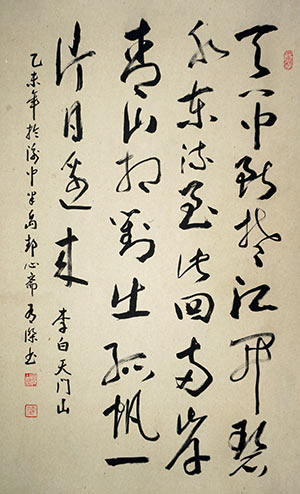 天门中断楚江開碧
水东流至此回两岸
青山相對出孤帆一
片日边来 李白天门山
乙未年於渝中半岛 心斋 书